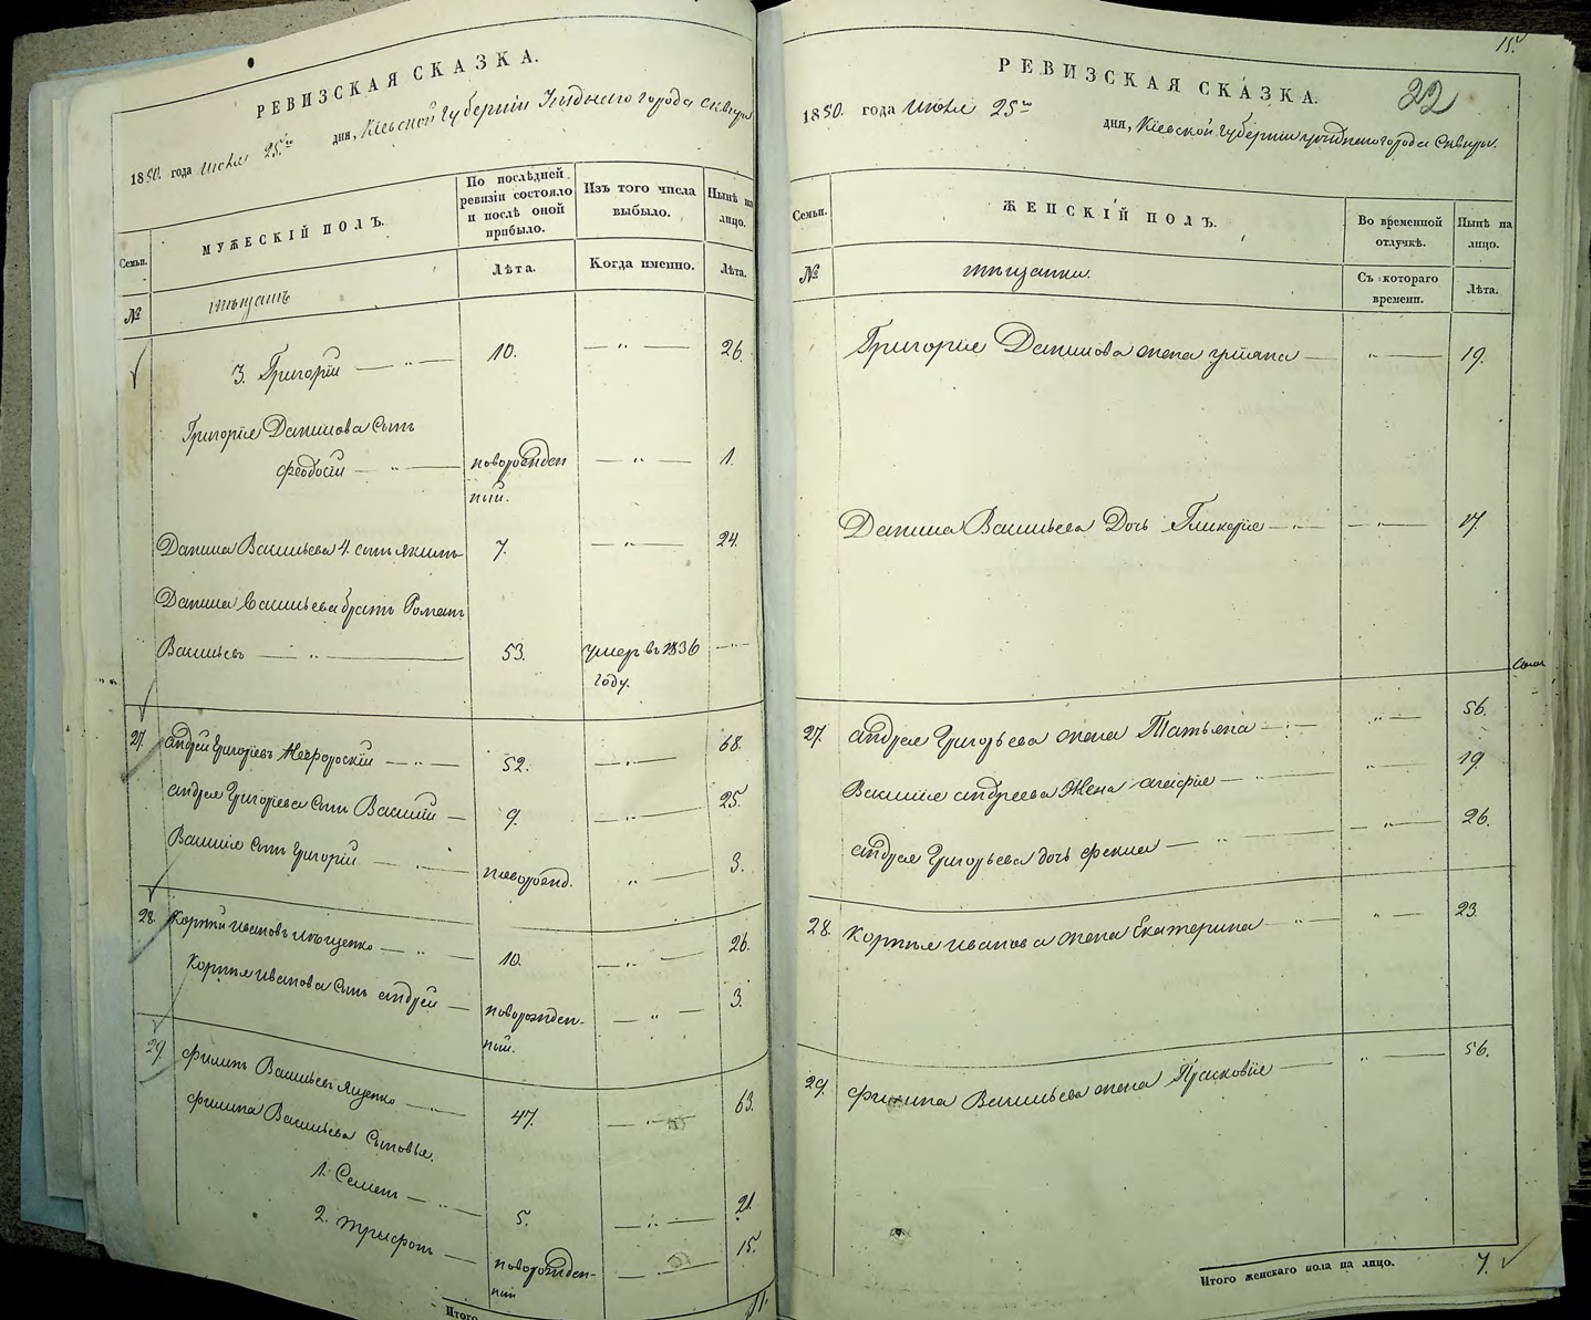 РЕВИЗСКАЯ СКАЗКА.
1850. года Июля 25го дня, Кіевской Губерніи Уѣзднаго города Сквиры
Семьи.
МУЖЕСКІЙ ПОЛЪ.
По послѣдней ревизіи состояло и послѣ оной прибыло.
Изъ того числа выбыло.
Нынѣ на лицо.
№
мѣщанъ
Лѣта.
Когда именно.
Лѣта.
3. Григорій — „ — 10. — „ — 26.
Григорія Данилова Сынъ
Феодосій — „ — новорожден — „ — 1.
ный.
Данила Васильева 4. сынъ Якимъ 7. — „ — 24.
Данила Васильева братъ Романъ
Васильевъ — „ — 53. умеръ въ 1836 — „ —
году.
27. Андрей Григорьевъ — „ — 52. — „ — 68.
Андрея Григорьева Сынъ Василій — 9. — „ — 25.
Василія Сынъ Григорій — „ — новорожд. „ — 3.
28. Корнѣй Ивановъ — „ — 10. — „ — 26.
Корнѣя Иванова Сынъ Андрей — новорожден- — „ — 3.
ный.
29. Филипъ Васильевъ Яценко — „ — 47. — „ — 63.
Филипа Васильева Сыновья.
1. Семенъ — „ — 5. — „ — 21.
2. Трифонъ — новорожден- — „ — 15.
ный
Итого 11.
15.
22
РЕВИЗСКАЯ СКАЗКА.
1850. года Июля 25го дня, Кіевской Губерніи уѣзднаго города Сквиры.
Семьи.
ЖЕНСКІЙ ПОЛЪ.
Во временной отлучкѣ.
Нынѣ на лицо.
№
мѣщанки.
Съ котораго времени.
Лѣта.
Григорія Данилова жена Уліяна — „ — 19.
Данила Васильева Дочь Гликерія — „ — — „ — 17.
27. Андрея Григорьева жена Татьяна — „ — „ — 56.
Василія Андреева Жена Агафія — „ — „ — 19.
Андрея Григорьева дочь Фекла — „ — — „ — 26.
28. Корнѣя Иванова жена Екатерина — „ — „ — 23.
29. Филипа Васильева жена Прасковія — „ — 56.
Итого женскаго пола на лицо. 7.